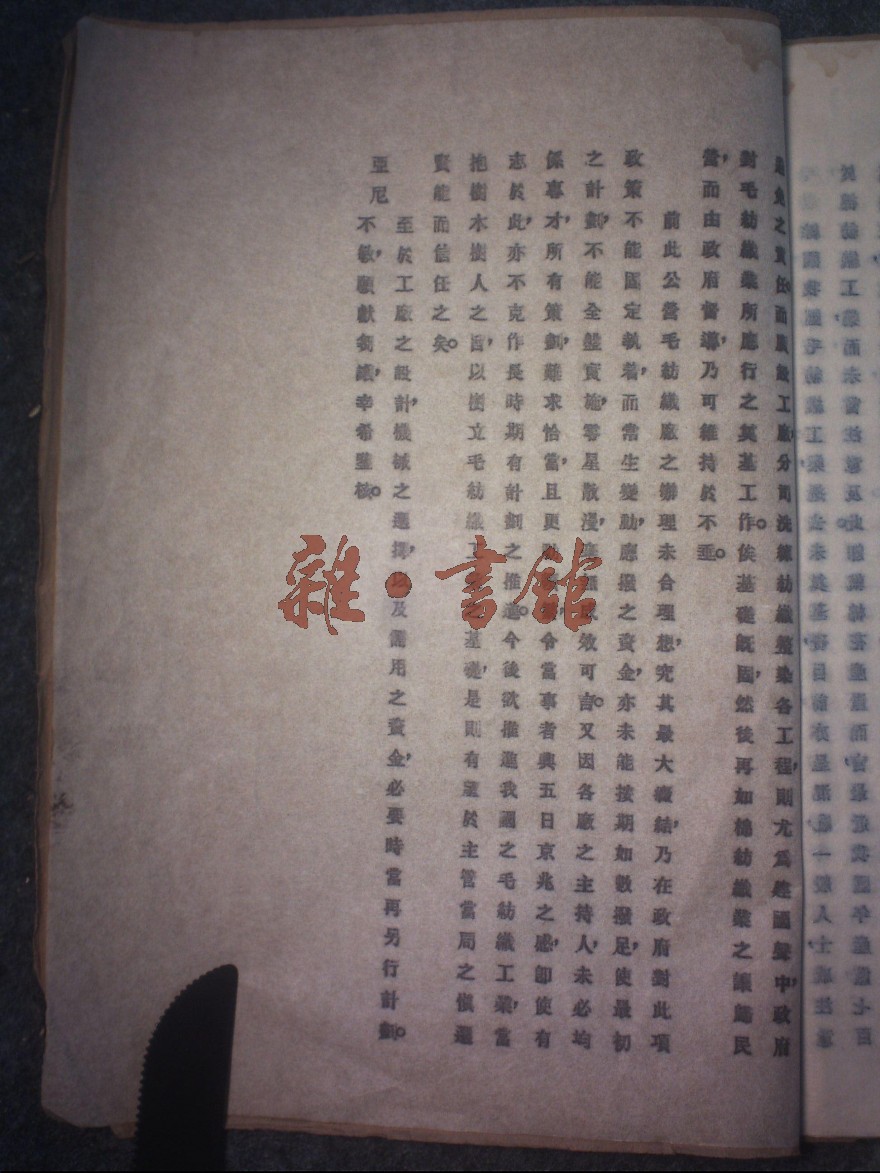 避免之責任。而廣設工廠,分司洗練紡織整染各工程,則尤爲建國聲中,政府
對毛紡織業所應行之奠基工作。俟基礎既固,然後再如棉紡織業之讓歸民
營,而由政府督導,乃可維持於不墜。
前此公營毛紡織廠之辦理未合理想,究其最大癥結,乃在政府對此項
政策不能固定執着,而常生變動,應撥之資金,亦未能按期如數撥足,使最初
之計劃,不能全盤實施,零星散漫,效可言。又因各廠之主持人,未必均
係專才,所有策劃,難求恰當,且更令當事者興五日京兆之感,卽使有
志於此,亦不克作長時期有計劃之推進。今後欲推進我國之毛紡織工業,當
抱樹木樹人之旨,以樹立毛紡織工之基礎,是則有望於主管當局之愼選
賢能而信任之矣。
至於工廠之設計,機械之選擇,以及需用之資金,必要時當再另行計劃。
亞尼不敏,願獻芻議,幸希鑒核。
雜·書館